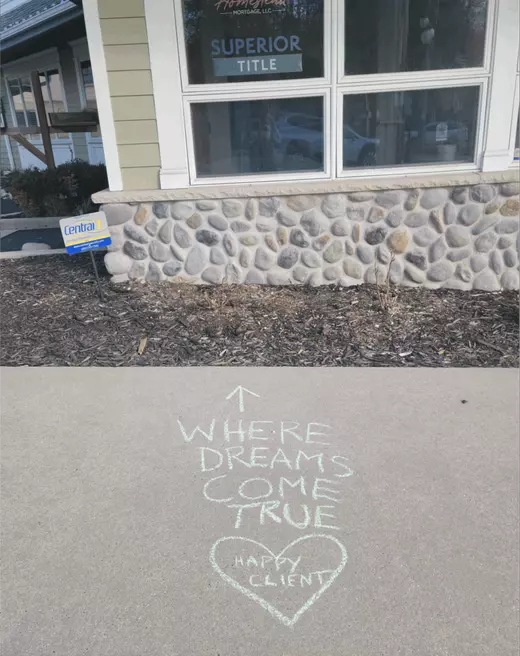 Homestead
MORTGAGE, LLC
SUPERIOR
TITLE
Central
↑
WHERE
DREAMS
COME
TRUE
HAPPY
CLIENT